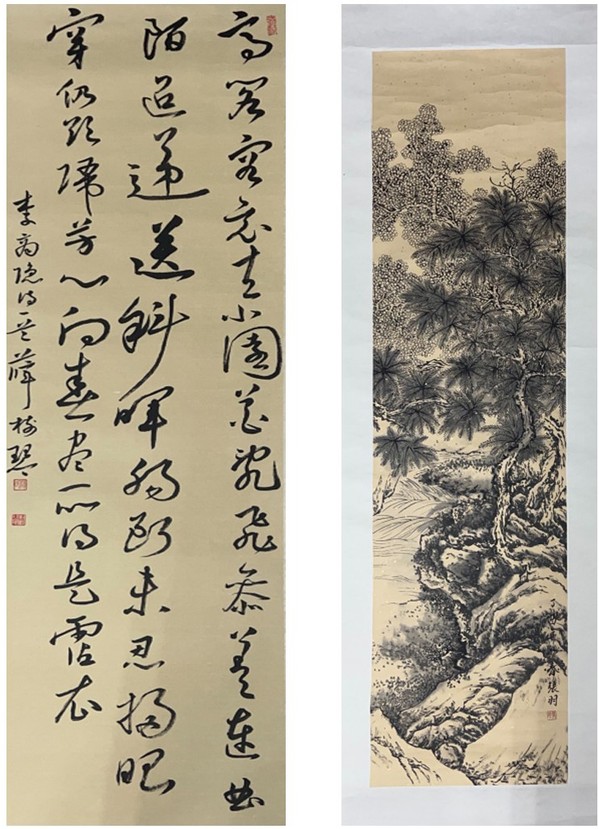 高閣客竟去小園花亂飛參差連曲
陌迢遞送斜暉腸斷未忍掃眼
穿仍欲歸芳心向春盡所得是霑衣
李商隱詩一首薛琴
張羽